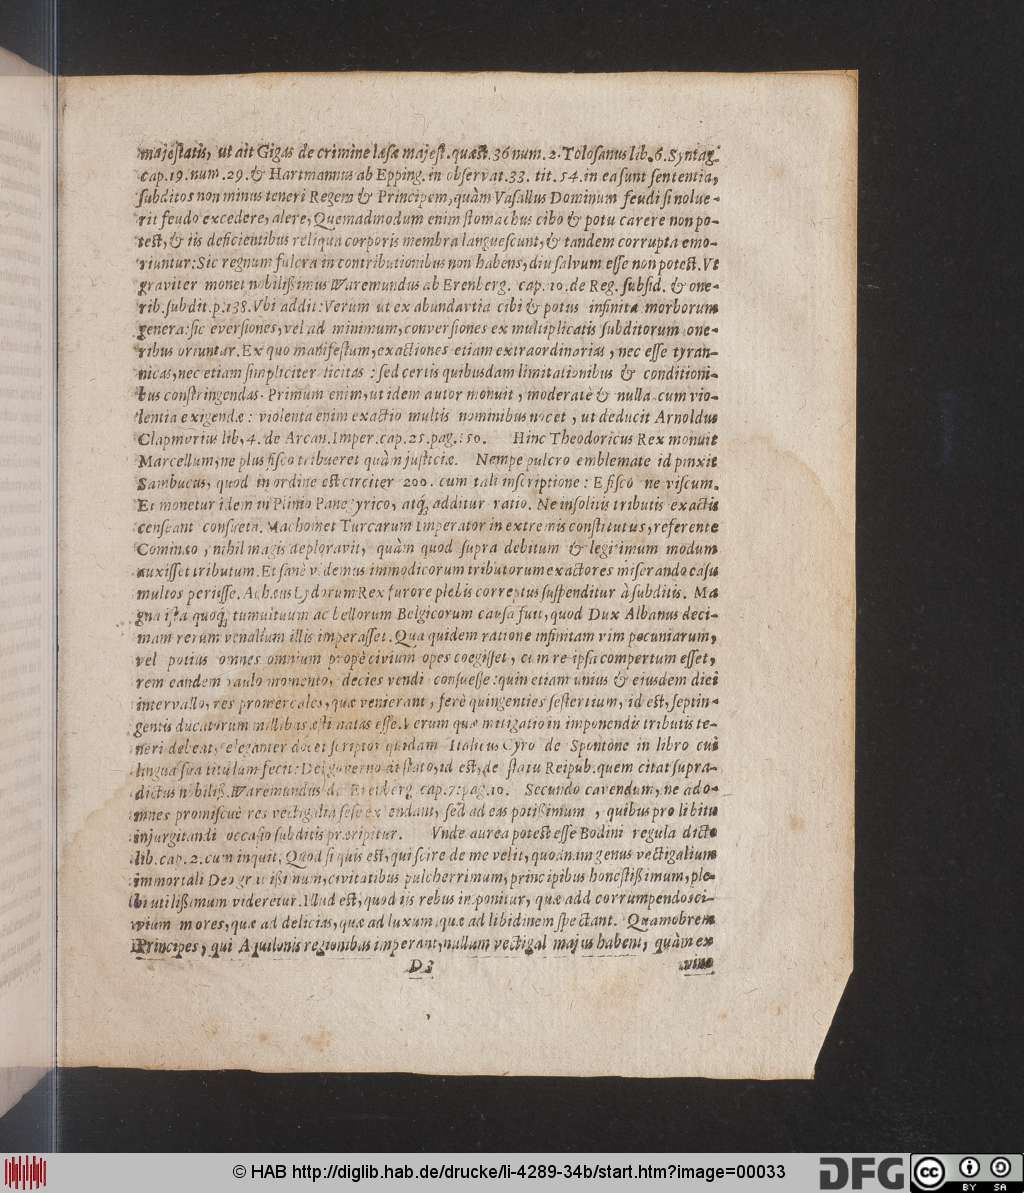 majestatis, ut ait Gigas de crimine læsæ majest. quæst. 36 num. 2. Tolosanus lib. 6. Syntag.
cap. 19. num. 29. & Hartmannus ab Epping. in observat. 33. tit. 54. in ea sunt sententia,
subditos non minus teneri Regem & Principem, quàm Vasallus Dominum feudi si nolue-
rit feudo excedere, alere, Quemadmodum enim stomachus cibo & potu carere non po-
test, & iis deficientibus reliqua corporis membra languescunt, & tandem corrupta emo-
riuntur: Sic regnum fulcra in contributionibus non habens, diu salvum esse non potest. Vt
graviter monet nobilißimus Waremundus ab Erenberg. cap. 10. de Reg. subsid. & one-
rib. subdit. p. 138. Vbi addit: Verum ut ex abundantia cibi & potus infinita morborum
genera: sic eversiones, vel ad minimum, conversiones ex multiplicatis subditorum one-
ribus oriuntur. Ex quo manifestum, exactiones etiam extraordinarias, nec esse tyran-
nicas, nec etiam simpliciter licitas: sed certis quibusdam limitationibus & conditioni-
bus constringendas. Primùm enim, ut idem autor monuit, moderatè & nulla cum vio-
lentia exigendæ: violenta enim exactio multis nominibus nocet, ut deducit Arnoldus
Clapmarius lib, 4. de Arcan. Imper. cap. 25. pag. 150. Hinc Theodoricus Rex monuit
Marcellum, ne plus fisco tribueret quàm justiciæ. Nempe pulcro emblemate id pinxit
Sambucus, quod in ordine est circiter 200. cum tali inscriptione: E fisco ne viscum.
Et monetur idem in Plinio Panegyrico, atq; additur ratio. Ne insolitis tributis exactis
censeant consueta. Machomet Turcarum Imperator in extremis constitutus, referente
Cominæo, nihil magis deploravit, quàm quod supra debitum & legitimum modum
auxisset tributum. Et sanè videmus immodicorum tributorum exactores miserando casu
multos periisse. Achæus Lydorum Rex furore plebis correptus suspenditur à subditis. Ma
gna ista quoq; tumultuum ac bellorum Belgicorum causa fuit, quod Dux Albanus deci-
mam rerum venalium illis imperasset. Qua quidem ratione infinitam vim pecuniarum,
vel potius omnes omnium propè civium opes coegisset, cum re ipsa compertum esset,
rem eandem paulo momento, decies vendi consuesse: quin etiam unius & ejusdem diei
intervallo, res promercales, quæ venierant, ferè quingenties sestertium, id est, septin-
gentis ducatorum millibus æstimatas esse. Verum quæ mitigatio in imponendis tributis te-
neri debeat, eleganter docet scriptor quidam Italicus Cyro de Spontone in libro cui
lingua sua titulum fecit: Del governo di stato, id est, de statu Reipub. quem citat supra-
dictus nobiliß. Waremundus de Erenberg cap. 7. pag. 10. Secundo cavendum, ne ad o-
mnes promiscuè res vectigalia sese extendant, sed ad eas potißimum, quibus pro libitu
injurgitandi occasio subditis præripitur. Vnde aurea potest esse Bodini regula dicto
lib. cap. 2. cum inquit, Quod si quis est, qui scire de me velit, quodnam genus vectigalium
immortali Deo gratißimum, civitatibus pulcherrimum, principibus honestißimum, ple-
bi utilißimum videretur. Illud est, quod iis rebus imponitur, quæ add corrumpendos ci-
vium mores, quæ ad delicias, quæ ad luxum, quæ ad libidinem spectant. Quamobrem
Principes, qui Aquilonis regionibus imperant, nullum vectigal majus habent, quàm ex
D 3 vino
© HAB http://diglib.hab.de/drucke/li-4289-34b/start.htm?image=00033
DFG cc BY SA